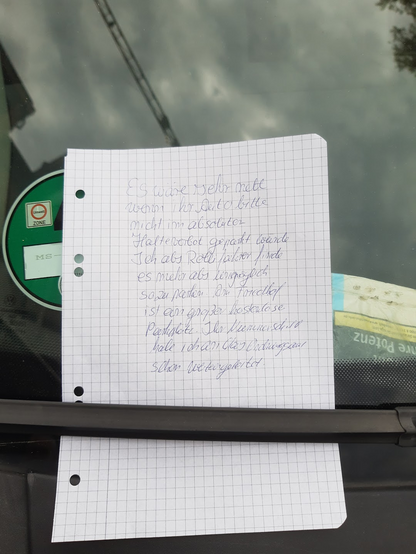 Es wäre sehr nett
wenn Ihr Auto bitte
nicht im absoluten
Halteverbot geparkt würde
Ich als Rollifahrer finde
es mehr als
so zu parken Am Friedhof
ist ein großer kostenlose
Parkplatz. Ihr Nummernschild
habe ich an das Ordnungsamt
schon weitergeleitet
ZONE
hre Potenz